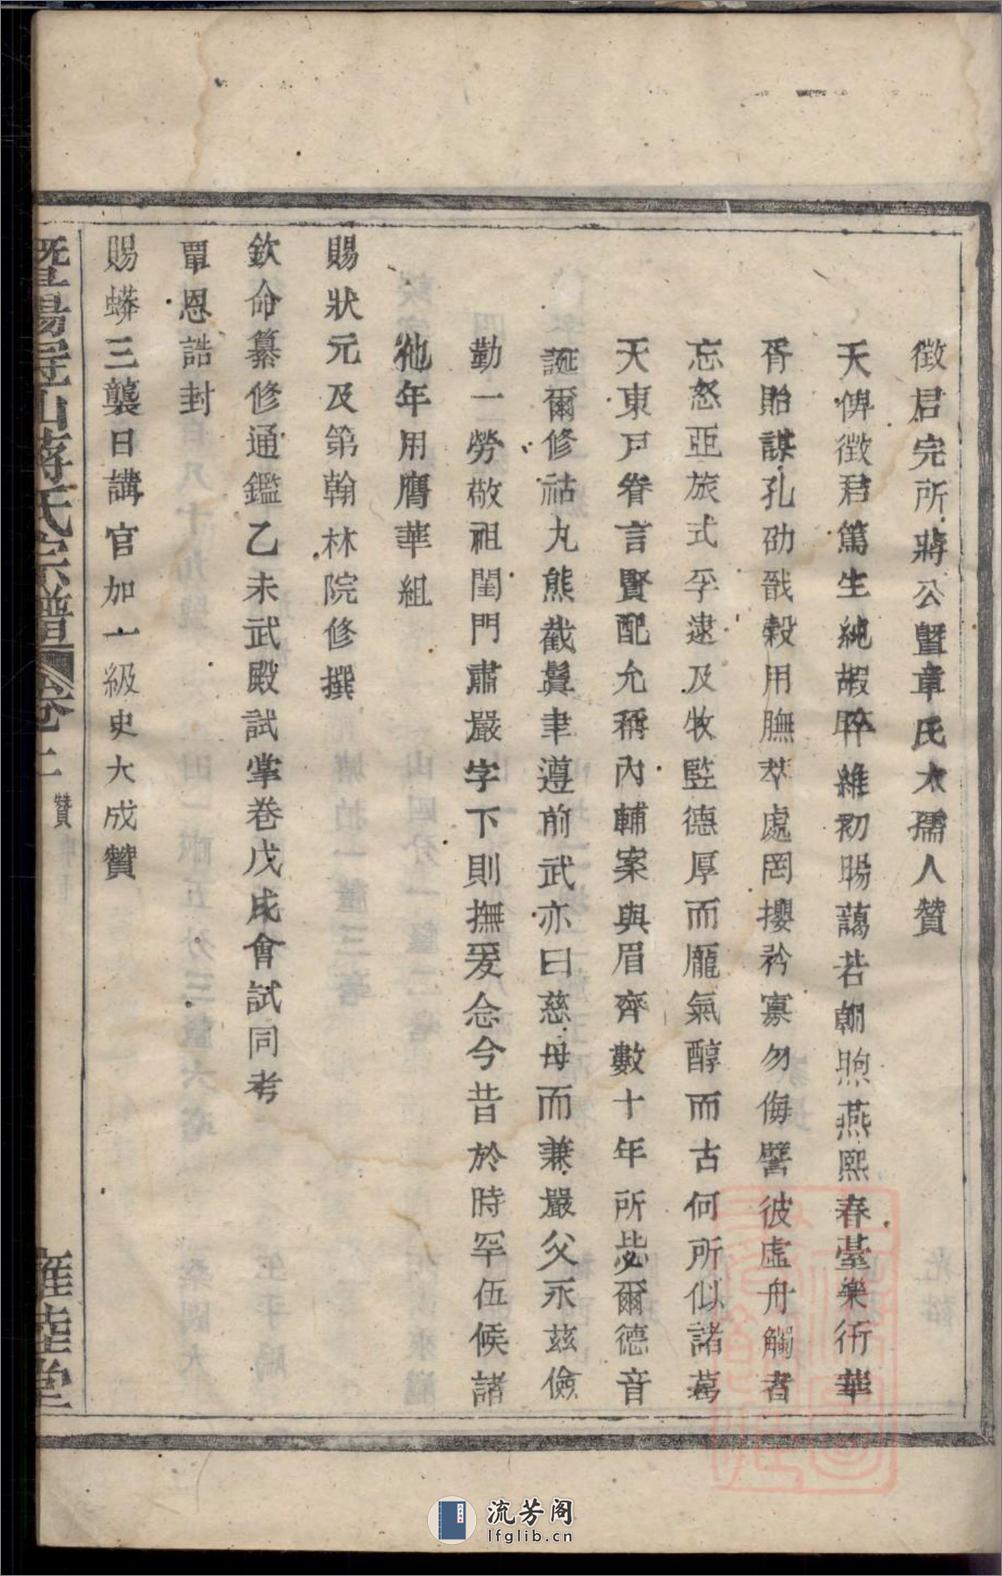 徵君完所蔣公暨章氏太孺人贊
天俾徵君篤生純嘏晬雜初暘藹若朝煦燕熙春臺樂衎華
胥貽謀孔劭戩穀用膴萃處罔攖矜寡勿侮譬彼虛舟觸者
忘怒亞旅式孚逮及牧監德厚而龐氣醇而古何所似諸葛
天東戸眷言賢配允稱內輔案與眉齊數十年所毖爾德音
誕爾修祜丸熊截髮聿遵前武亦曰慈母而兼嚴父永茲儉
勤一勞敬祖閨門肅嚴字下則撫爰念今昔於時罕伍候諸
他年用膺華組
賜狀元及第翰林院修撰
欽命纂修通鑑乙未武殿試掌卷戊戌會試同考
覃恩誥封
賜蟒三襲日講官加一級史大成贊
暨陽冠山蔣氏宗譜 卷二 贊
雍睦堂
流芳阁
lfglib.cn